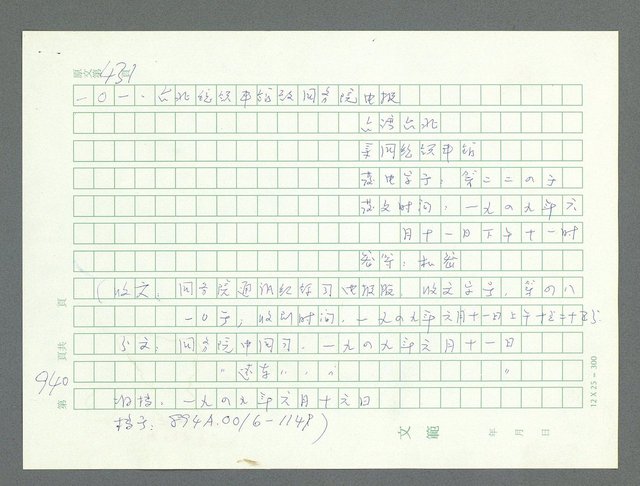 原文第431頁
一〇一、台北总领事馆致国务院电报
台湾台北
美国总领事馆
发电字号：第二二〇号
发文时间：一九四九年六
月十一日下午十一时
密等：机密
（收文：国务院通讯纪录司电报股，收文字号：第四八
一〇号，收到时间：一九四九年六月十一日上午十
分文：国务院中国司，一九四九年六月十一日
" 远东 " " "
归档：一九四九年六月十六日
档号：894A.00/6-1149）
第940頁共頁
文範
年月日
12 X 25 = 300